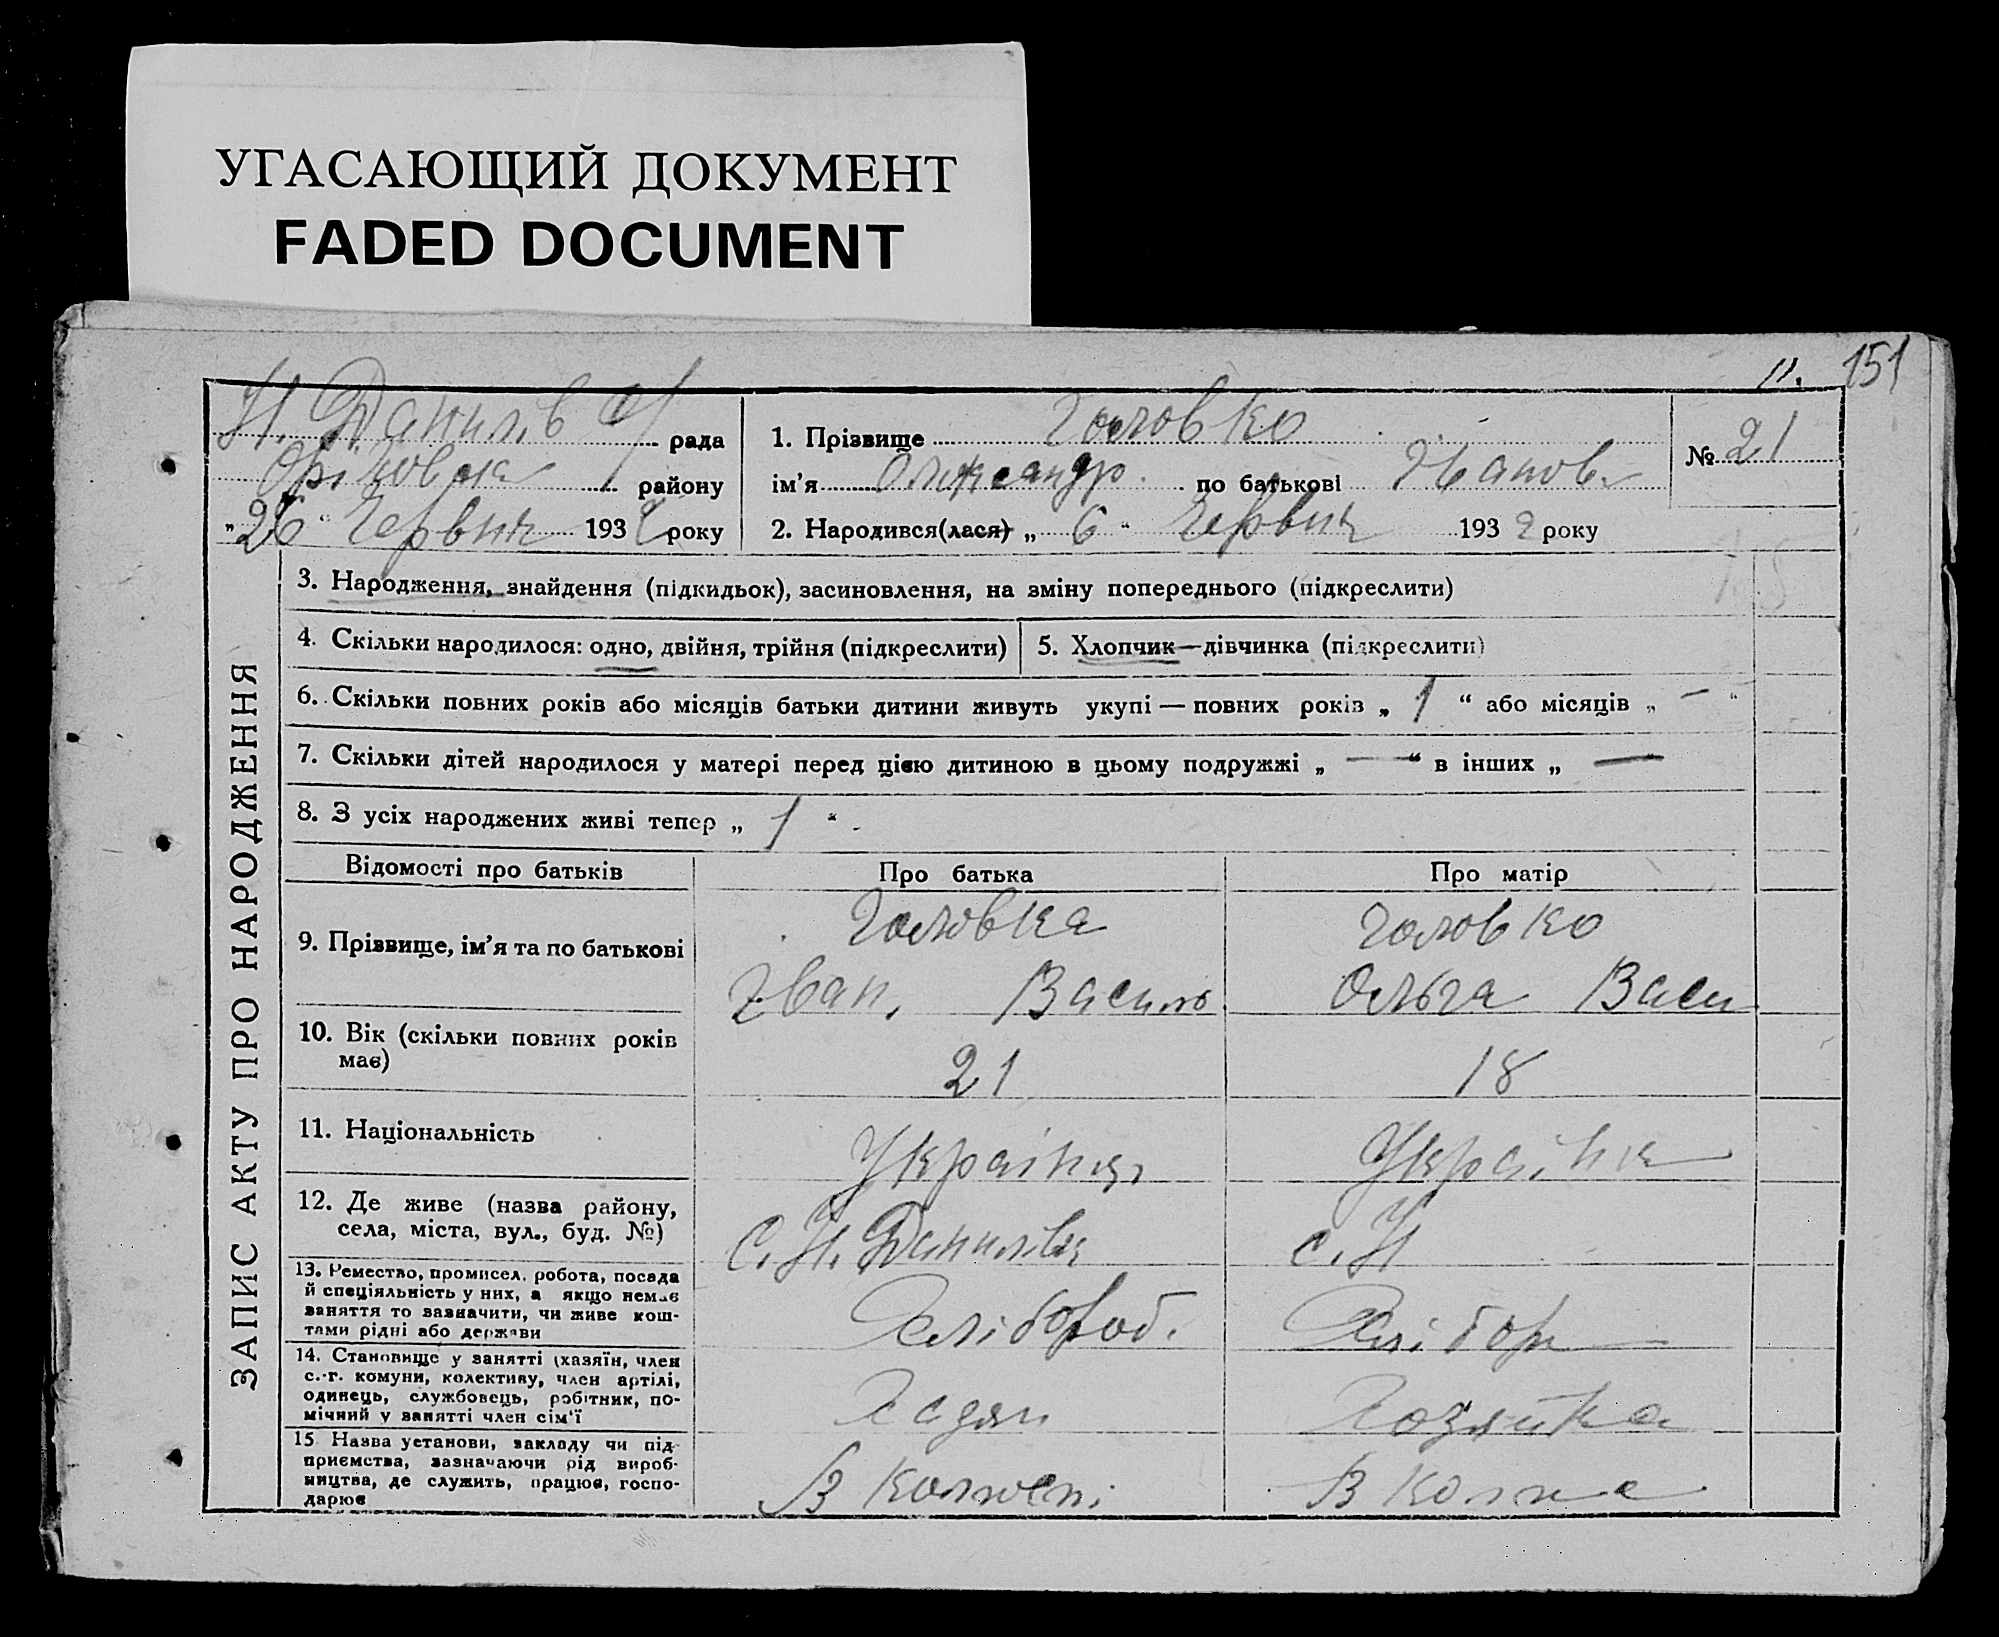 УГАСАЮЩИЙ ДОКУМЕНТ
FADED DOCUMENT
11. 151
Н. Данилів с/ рада
району
„26“ Червня 1932 року
1. Прізвище Головко
ім'я Олександр. по батькові Іванов.
2. Народився(лася) „6“ Червня 1932 року
№ 21
ЗАПИС АКТУ ПРО НАРОДЖЕННЯ
3. Народження, знайдення (підкидьок), засиновлення, на зміну попереднього (підкреслити)
4. Скільки народилося: одно, двійня, трійня (підкреслити)
5. Хлопчик—дівчинка (підкреслити)
6. Скільки повних років або місяців батьки дитини живуть укупі — повних років „ 1 “ або місяців „ — “
7. Скільки дітей народилося у матері перед цією дитиною в цьому подружжі „ — “ в інших „ — “
8. З усіх народжених живі тепер „ 1 “.
Відомості про батьків Про батька Про матір
9. Прізвище, ім'я та по батькові
Головка
Іван. Василь.
Головко
Ольга Васи
10. Вік (скільки повних років
має)
21
18
11. Національність
Українец,
Українка
12. Де живе (назва району,
села, міста, вул., буд. №)
С. Н. Данилівц
с. Н
13. Ремество, промисел, робота, посада
й спеціяльність у них, а якщо немає
заняття то зазначити, чи живе кош-
тами рідні або держави
Хлібороб.
Хлібор
14. Становище у занятті (хазяїн, член
с.-г. комуни, колективу, член артілі,
одинець, службовець, робітник, по-
мічний у занятті член сім'ї
Хозяйка
15 Назва установи, закладу чи під-
приємства, зазначаючи рід вироб-
ництва, де служить, працює, госпо-
дарює
В
В